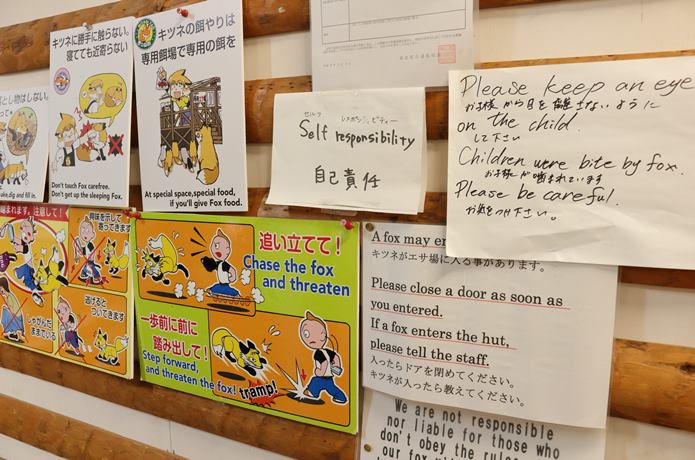 キツネに勝手に触らない。
寝てても近寄らない
Don't touch Fox carefree.
Don't get up the sleeping Fox.
キツネの餌やりは
専用餌場で専用の餌を
At special space,special food,
if you'll give Fox food.
とし物はしない。
dig and fill in.
セルフ レスポンシビティー
Self responsibility
自己責任
Please keep an eye
お子様から目を離さないように
on the child.
して下さい
Children were bite by fox.
お子様が噛まれています
Please be careful.
お気をつけ下さい。
噛まれます。注意して!
興味を示して
寄ってきます
しゃがんだ
ままでいる
逃げると
ついてきます
追い立てて!
Chase the fox
and threaten
一歩前に前に
踏み出して!
Step forward,
and threaten the fox!
tramp!
A fox may en
キツネがエサ場に入る事があります。
Please close a door as soon as
you entered.
If a fox enters the hut,
please tell the staff.
入ったらドアを閉めてください。
キツネが入ったら教えてください。
We are not responsible
nor liable for those who
don't obey the rules
our fox